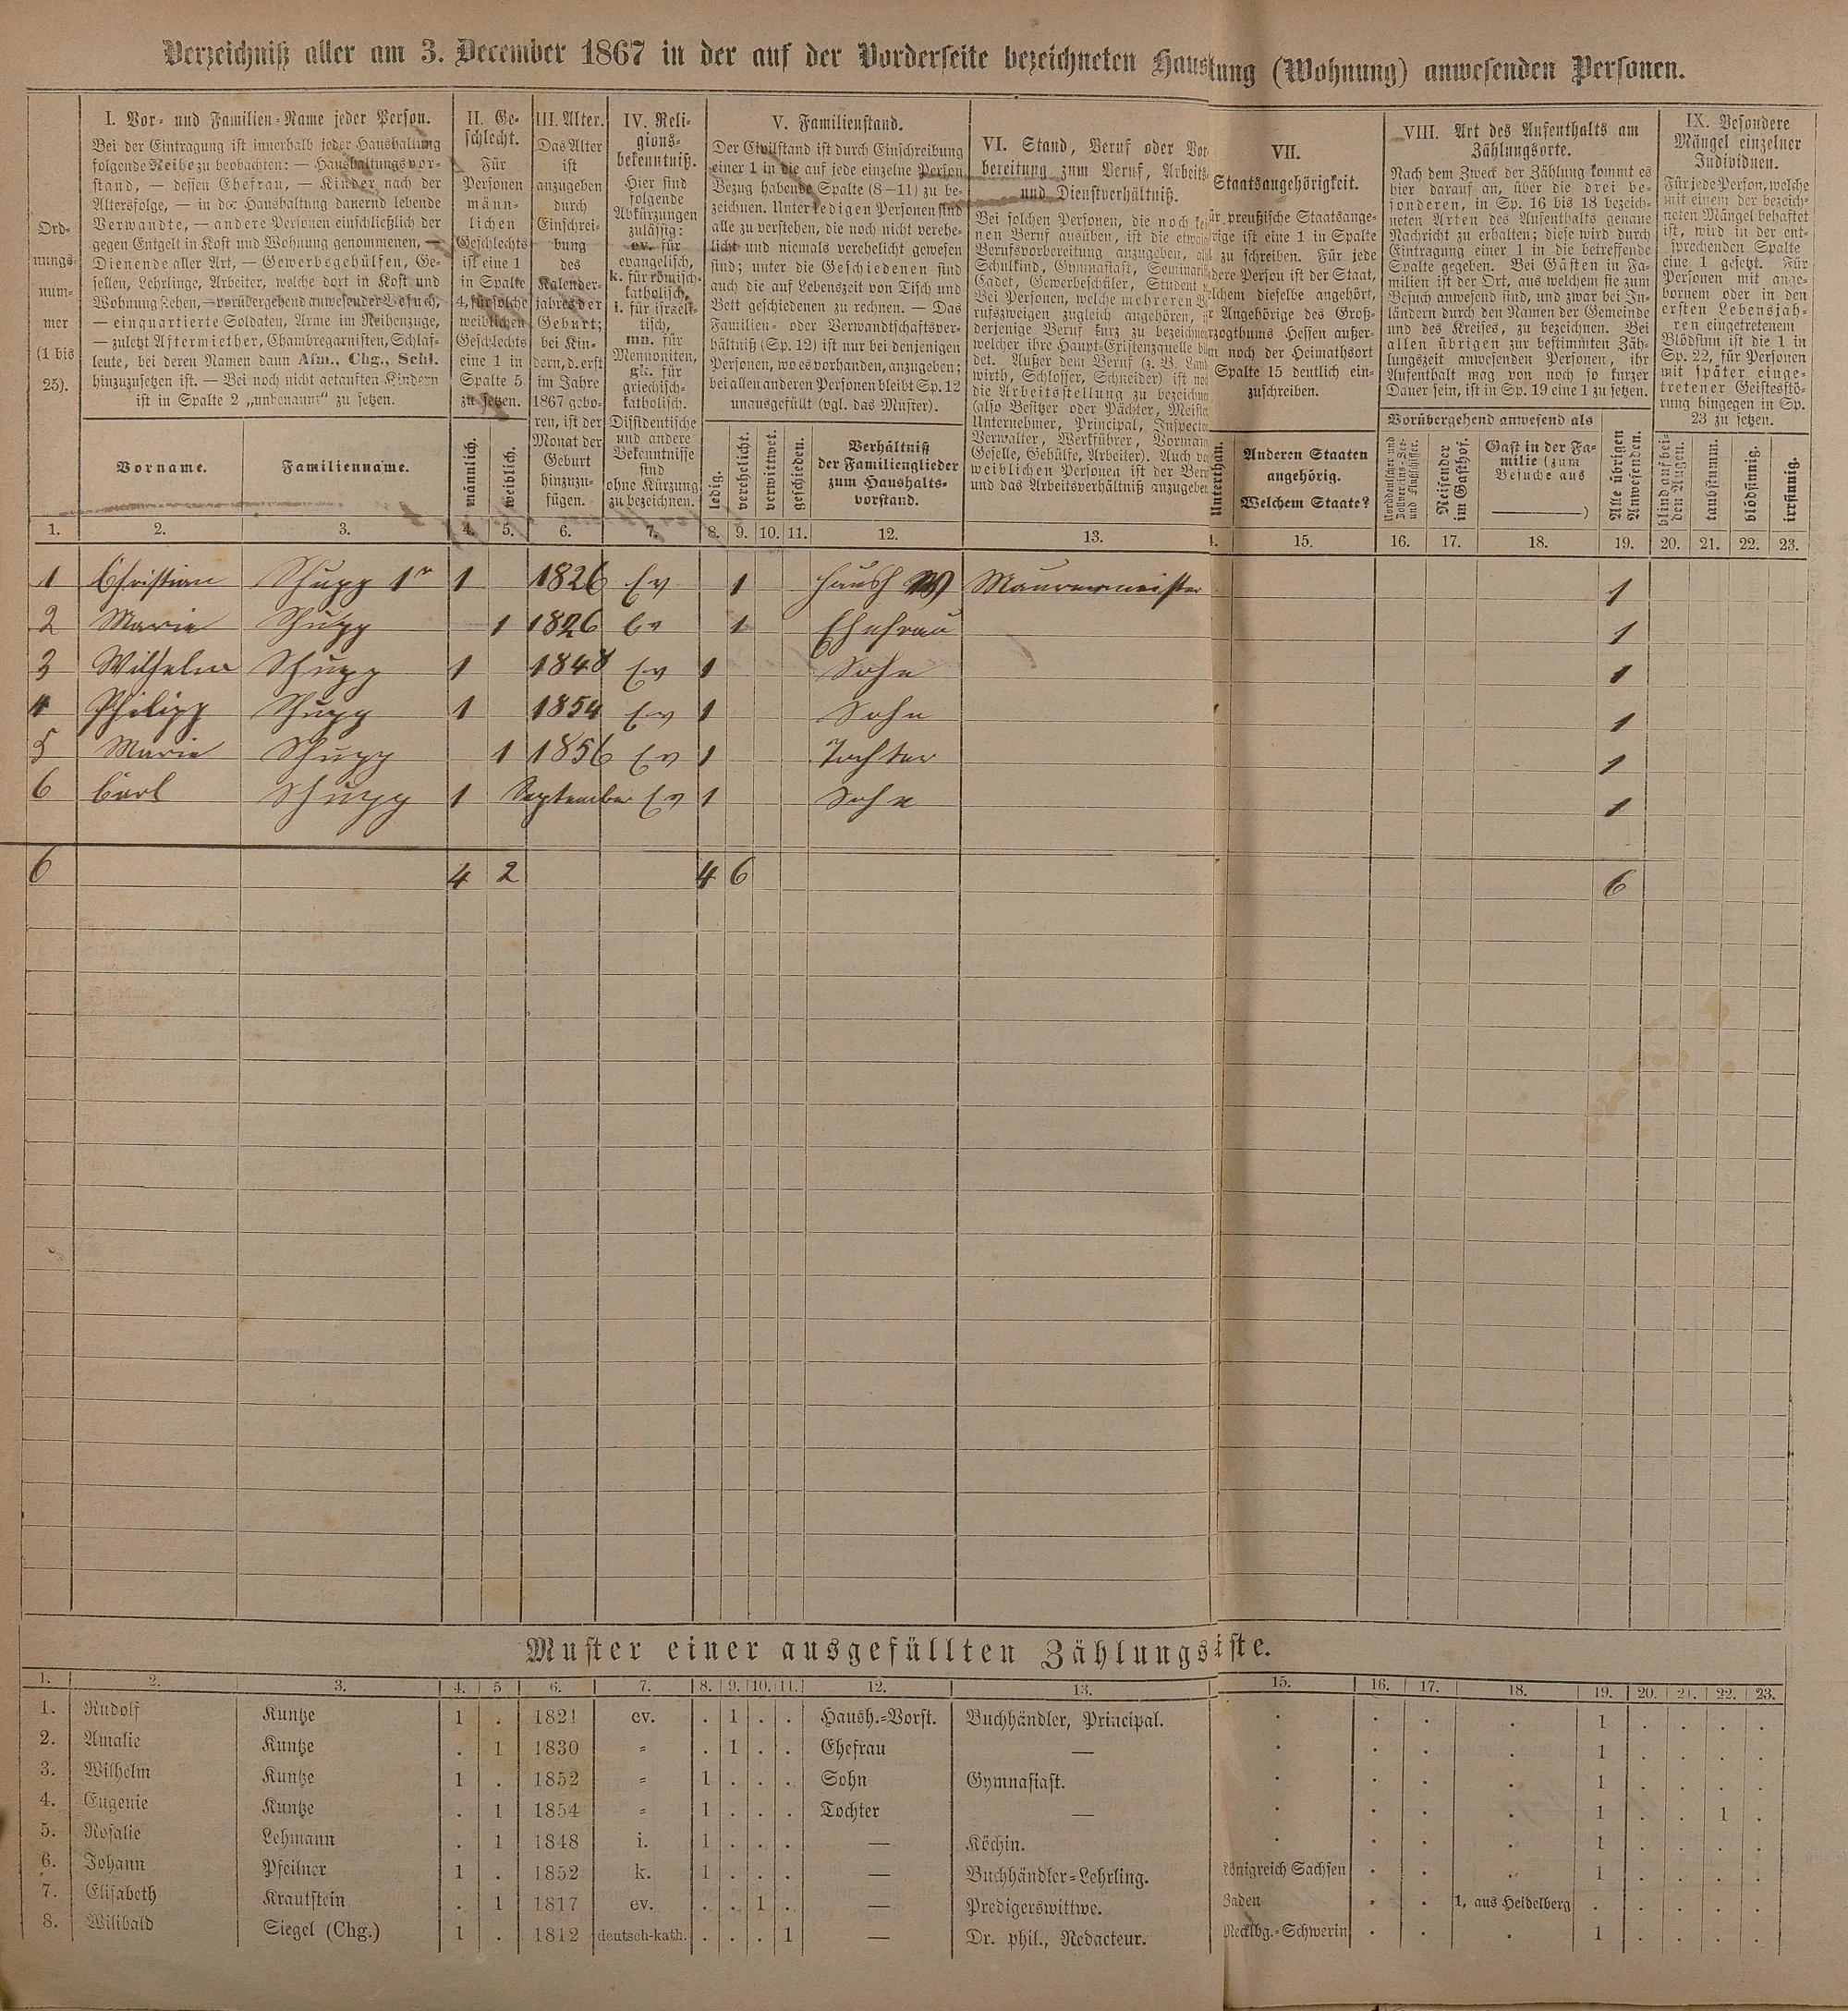 Verzeichniß aller am 3. December 1867 in der auf der Vorderseite bezeichneten Haustung (Wohnung) anwesenden Personen.
Ord-
nungs-
num-
mer
(1 bis
25).
I. Vor- und Familien-Name jeder Person.
Bei der Eintragung ist innerhalb jeder Haushaltung
folgende Reihe zu beobachten: — Haushaltungsvor-
stand, — dessen Ehefrau, — Kinder nach der
Altersfolge, — in der Haushaltung dauernd lebende
Verwandte, — andere Personen einschließlich der
gegen Entgelt in Kost und Wohnung genommenen, —
Dienende aller Art, — Gewerbsgehülfen, Ge-
sellen, Lehrlinge, Arbeiter, welche dort in Kost und
Wohnung stehen, — vorübergehend anwesender Besuch,
— einquartierte Soldaten, Arme im Reihenzuge,
— zuletzt Aftermiether, Chambregarnisten, Schlaf-
leute, bei deren Namen dann Afm., Chg., Schl.
hinzuzusetzen ist. — Bei noch nicht getauften Kindern
ist in Spalte 2 „unbenannt“ zu setzen.
Vorname.
Familienname.
II. Ge-
schlecht.
Für
Personen
männ-
lichen
Geschlechts
ist eine 1
in Spalte
4, für solche
weiblichen
Geschlechts
eine 1 in
Spalte 5
zu setzen.
männlich.
weiblich.
III. Alter.
Das Alter
ist
anzugeben
durch
Einschrei-
bung
des
Kalender-
jahres der
Geburt;
bei Kin-
dern, d. erst
im Jahre
1867 gebo-
ren, ist der
Monat der
Geburt
hinzuzu-
fügen.
IV. Reli-
gions-
bekenntniß.
Hier sind
folgende
Abkürzungen
zulässig:
ev. für
evangelisch,
k. für römisch-
katholisch,
i. für israeli-
tisch,
mn. für
Mennoniten,
gk. für
griechisch-
katholisch.
Dissidentische
und andere
Bekenntnisse
sind
ohne Kürzung
zu bezeichnen.
V. Familienstand.
Der Civilstand ist durch Einschreibung
einer 1 in die auf jede einzelne Person
Bezug habende Spalte (8—11) zu be-
zeichnen. Unter ledigen Personen sind
alle zu verstehen, die noch nicht verehe-
licht und niemals verehelicht gewesen
sind; unter die Geschiedenen sind
auch die auf Lebenszeit von Tisch und
Bett geschiedenen zu rechnen. — Das
Familien- oder Verwandtschaftsver-
hältniß (Sp. 12) ist nur bei denjenigen
Personen, wo es vorhanden, anzugeben;
bei allen anderen Personen bleibt Sp. 12
unausgefüllt (vgl. das Muster).
ledig.
verehelicht.
verwittwet.
geschieden.
Verhältniß
der Familienglieder
zum Haushalts-
vorstand.
VI. Stand, Beruf oder Vor
bereitung zum Beruf, Arbeits
und Dienstverhältniß.
Bei solchen Personen, die noch kei
nen Beruf ausüben, ist die etwai
Berufsvorbereitung anzugeben, al
Schulkind, Gymnasiast, Seminarist
Cadet, Gewerbeschüler, Student
Bei Personen, welche mehreren B
rufszweigen zugleich angehören,
derjenige Beruf kurz zu bezeichnen
welcher ihre Haupt-Existenzquelle bil
det. Außer dem Beruf (z. B. Land
wirth, Schlosser, Schneider) ist noch
die Arbeitsstellung zu bezeichnen
(also Besitzer oder Pächter, Meister
Unternehmer, Principal, Inspector
Verwalter, Werkführer, Vormann
Geselle, Gehülfe, Arbeiter). Auch
weiblichen Personen ist der Ber
und das Arbeitsverhältniß anzugeben
VII.
Staatsangehörigkeit.
ür preußische Staatsange-
rige ist eine 1 in Spalte
zu schreiben. Für jede
dere Person ist der Staat,
lchem dieselbe angehört,
r Angehörige des Groß-
rzogthums Hessen außer-
noch der Heimathsort
Spalte 15 deutlich ein-
zuschreiben.
Unterthan.
Anderen Staaten
angehörig.
Welchem Staate?
VIII. Art des Aufenthalts am
Zählungsorte.
Nach dem Zweck der Zählung kommt es
hier darauf an, über die drei be-
sonderen, in Sp. 16 bis 18 bezeich-
neten Arten des Aufenthalts genaue
Nachricht zu erhalten; diese wird durch
Eintragung einer 1 in die betreffende
Spalte gegeben. Bei Gästen in Fa-
milien ist der Ort, aus welchem sie zum
Besuch anwesend sind, und zwar bei In-
ländern durch den Namen der Gemeinde
und des Kreises, zu bezeichnen. Bei
allen übrigen zur bestimmten Zäh-
lungszeit anwesenden Personen, ihr
Aufenthalt mag von noch so kurzer
Dauer sein, ist in Sp. 19 eine 1 zu setzen.
Vorübergehend anwesend als
Norddeutscher und
Zollvereins-See-
und Flußschiffer.
Reisender
im Gasthof.
Gast in der Fa-
milie (zum
Besuche aus
)
Alle übrigen
Anwesenden.
IX. Besondere
Mängel einzelner
Individuen.
Für jede Person, welche
mit einem der bezeich-
neten Mängel behaftet
ist, wird in der ent-
sprechenden Spalte
eine 1 gesetzt. Für
Personen mit ange-
bornem oder in den
ersten Lebensjah-
ren eingetretenem
Blödsinn ist die 1 in
Sp. 22, für Personen
mit später einge-
tretener Geistesstö-
rung hingegen in Sp.
23 zu setzen.
blind auf bei-
den Augen.
taubstumm.
blödsinnig.
irrsinnig.
1. 2. 3. 4. 5. 6. 7. 8. 9. 10. 11. 12. 13. 15. 16. 17. 18. 19. 20. 21. 22. 23.
1 Christian Schupp 1r 1 1826 Ev 1 Haush V Maurermeister 1
2 Marie Schupp 1 1826 Ev 1 Ehefrau 1
3 Wilhelm Schupp 1 1848 Ev 1 Sohn 1
4 Philipp Schupp 1 1854 Ev 1 Sohn 1
5 Marie Schupp 1 1856 Ev 1 Tochter 1
6 Carl Schupp 1 September Ev 1 Sohn 1
6 4 2 4 6 6
Muster einer ausgefüllten Zählungsliste.
1. 2. 3. 4. 5 6. 7. 8. 9. 10. 11. 12. 13. 15. 16. 17. 18. 19. 20. 21. 22. 23.
1. Rudolf Kuntze 1 . 1821 ev. . 1 . . Haush.-Vorst. Buchhändler, Principal. . . . . 1 . . . .
2. Amalie Kuntze . 1 1830 „ . 1 . . Ehefrau — . . . . 1 . . . .
3. Wilhelm Kuntze 1 . 1852 „ 1 . . . Sohn Gymnasiast. . . . . 1 . . . .
4. Eugenie Kuntze . 1 1854 „ 1 . . . Tochter — . . . . 1 . . 1 .
5. Rosalie Lehmann . 1 1848 i. 1 . . . — Köchin. . . . . 1 . . . .
6. Johann Pfeilner 1 . 1852 k. 1 . . . — Buchhändler-Lehrling. Königreich Sachsen . . . 1 . . . .
7. Elisabeth Krautstein . 1 1817 ev. . . 1 . — Predigerswittwe. Baden . . 1, aus Heidelberg . . . . .
8. Wilibald Siegel (Chg.) 1 . 1812 deutsch-kath. . . . 1 — Dr. phil., Redacteur. Mecklbg.-Schwerin . . . 1 . . . .